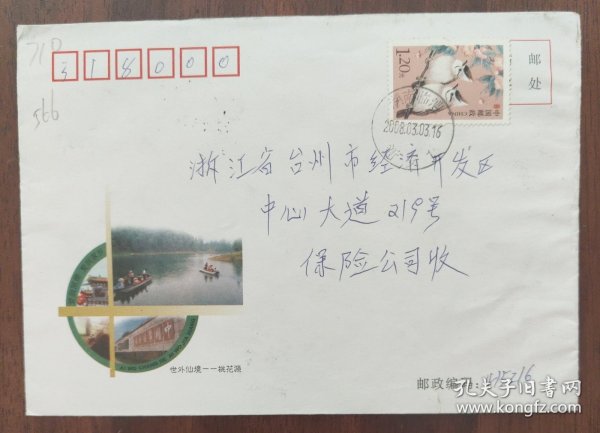 71D
566
3 1 8 0 0 0
1.20元
中国邮政 CHINA
邮
处
2008.03.03.16
浙江省台州市经济开发区
中心大道219号
保险公司收
世外仙境一一桃花源
邮政编码:415716
孔夫子旧书网
www.kongfz.com